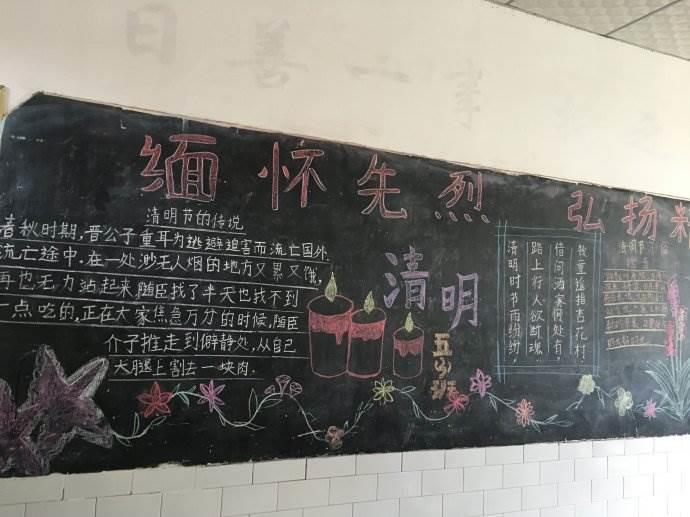 缅怀先烈 弘扬
清明节的传说
秋时期,晋公子重耳为逃避迫害而流亡国外.
流亡途中,在一处渺无人烟的地方又累又饿,
再也无力站起来.随臣找了半天也找不到
一点吃的,正在大家焦急万分的时候,随臣
介子推走到僻静处,从自己
大腿上割去一块肉.
清明
五 班
清明时节雨纷纷
路上行人欲断魂
借问酒家何处有
牧童遥指杏花村
清明节